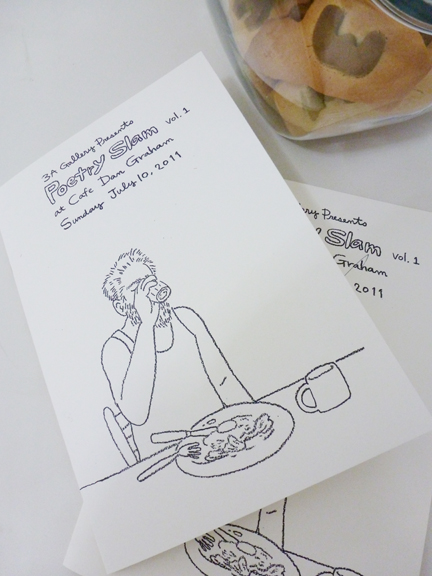 3A Gallery Presents
Poetry Slam vol. 1
at Cafe Dan Graham
Sunday July 10, 2011
ery Presents
Slam vol. 1
Graham
2011